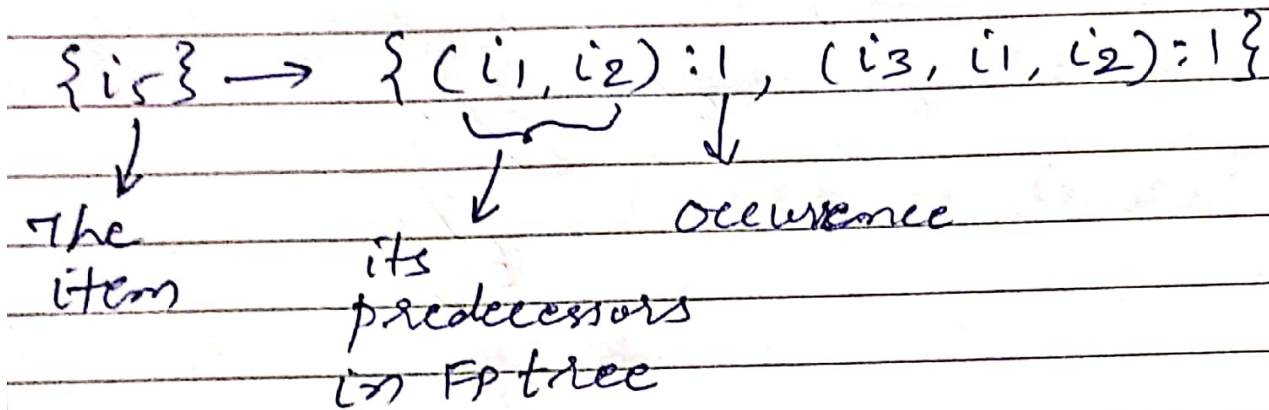 {i5} → {(i1, i2):1, (i3, i1, i2):1}
The
item
its
predecessors
in FP tree
occurence